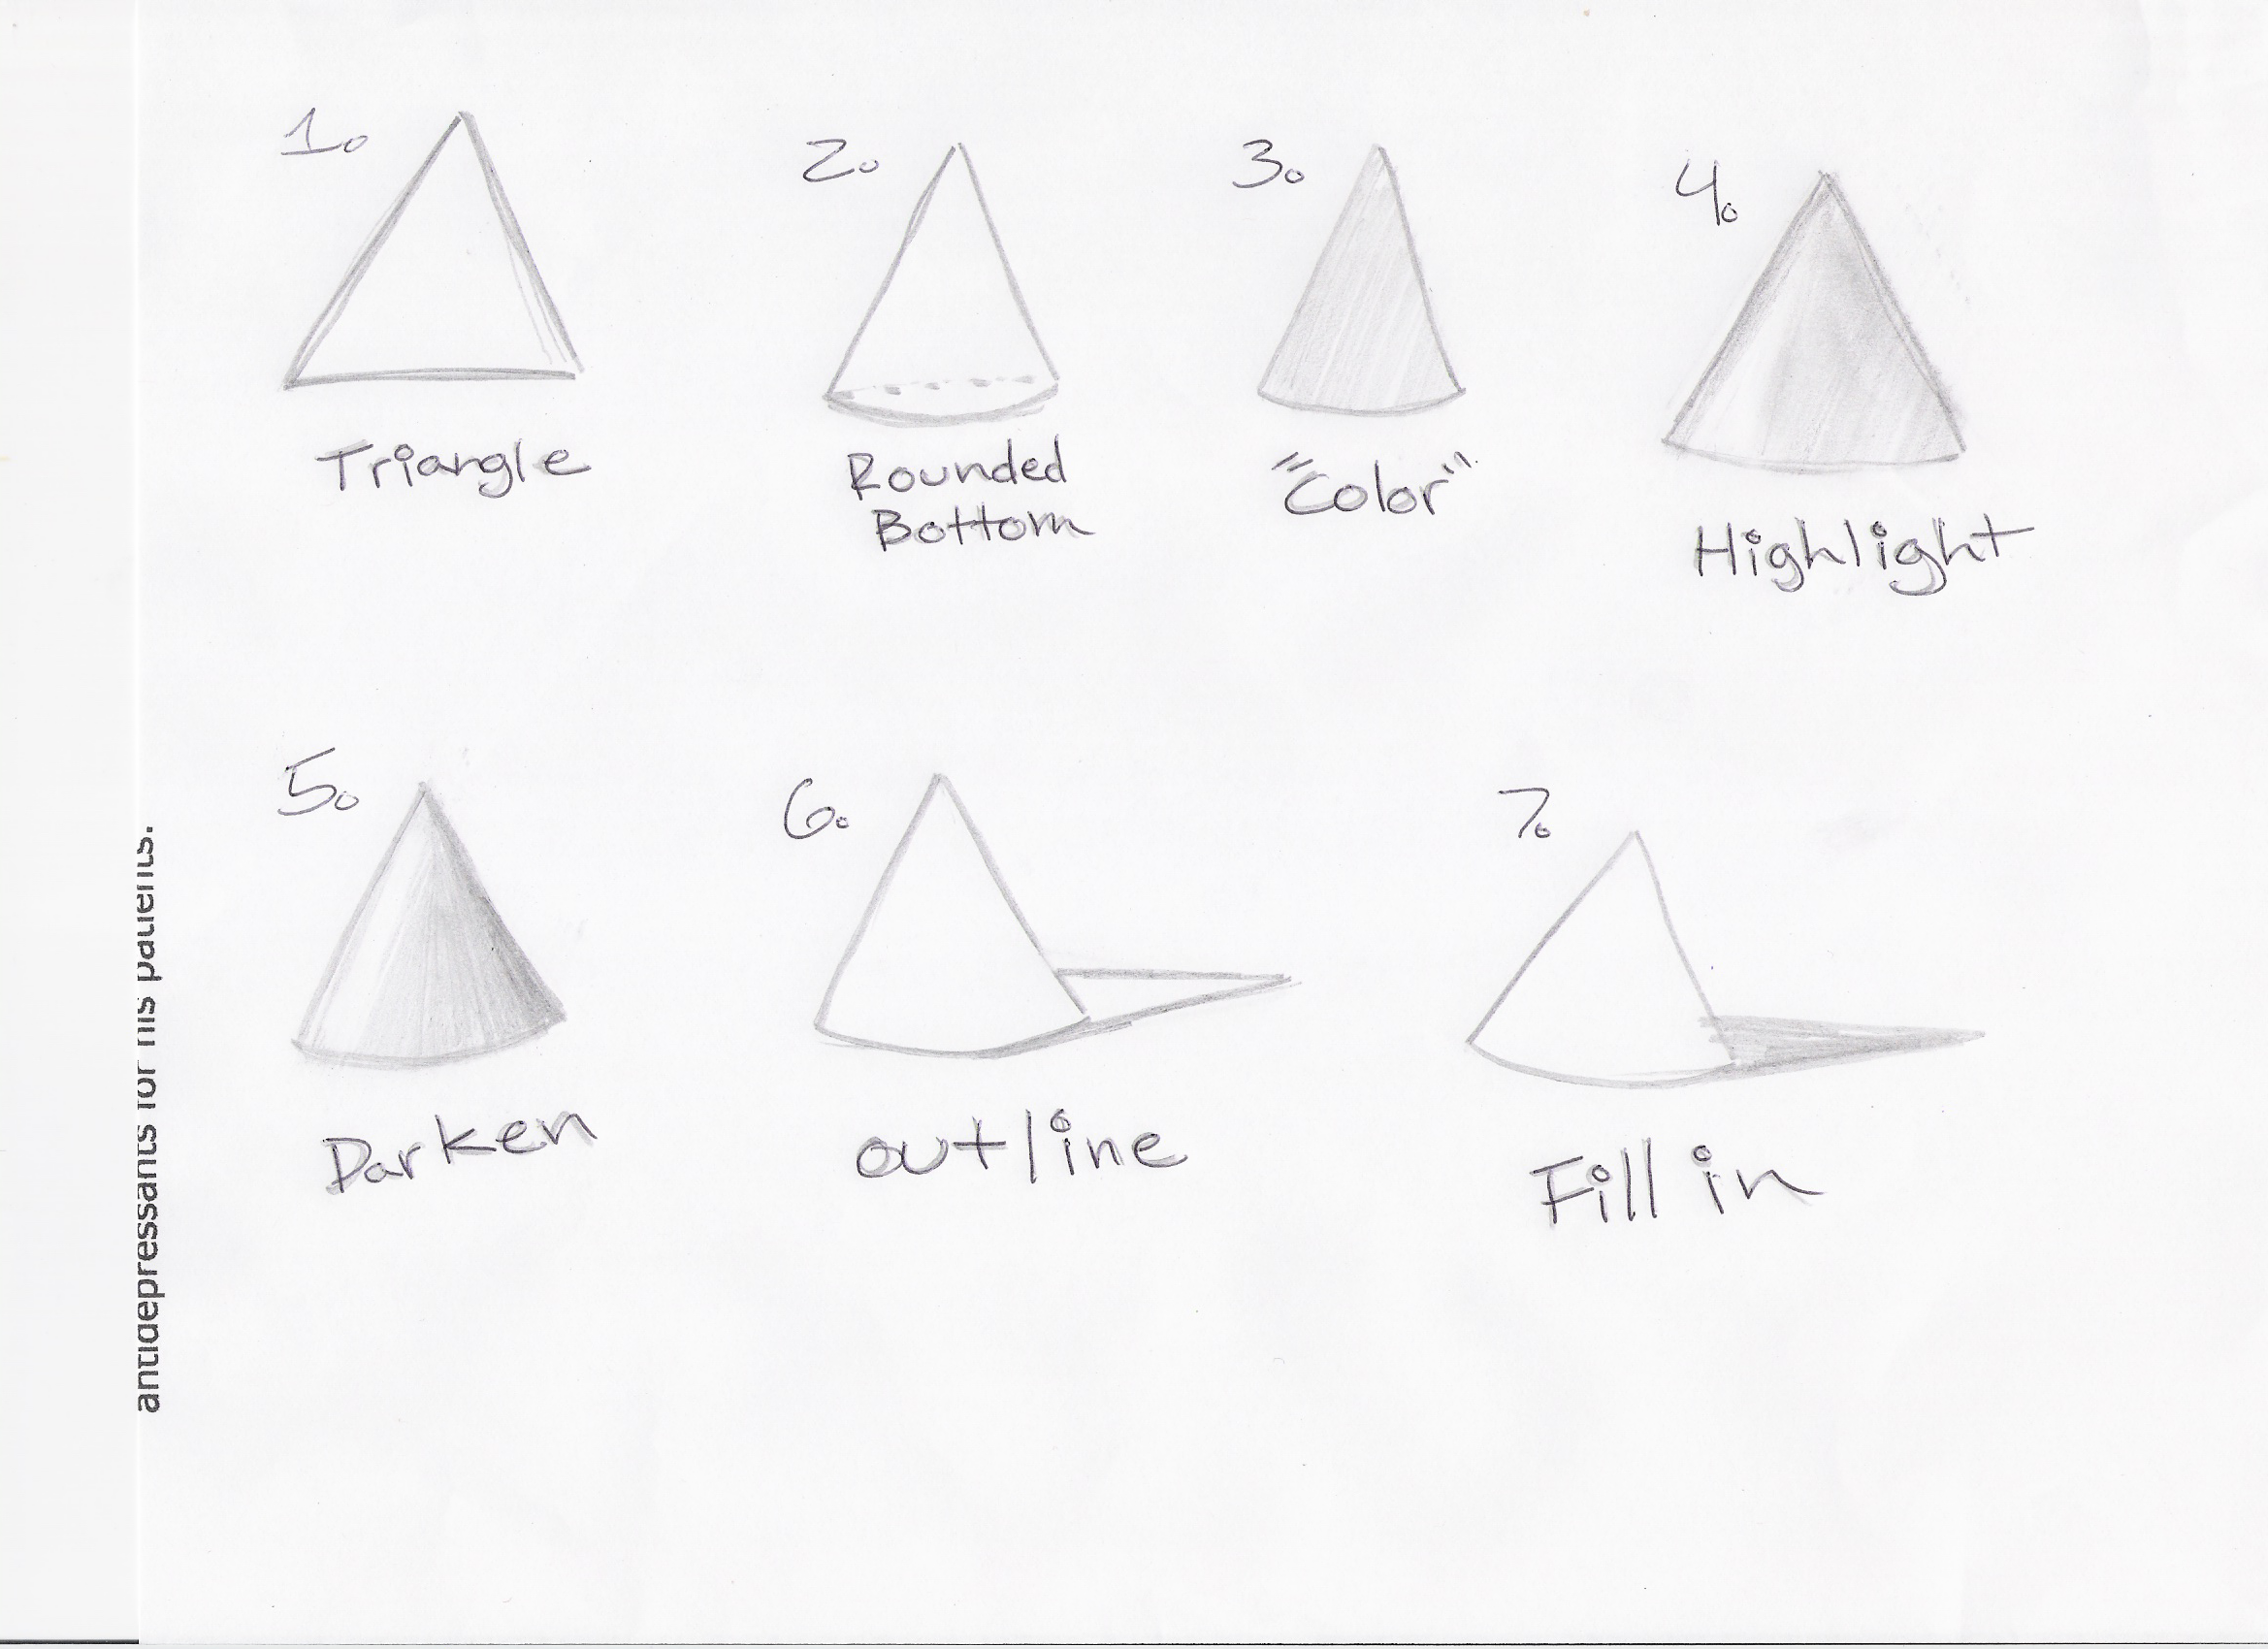 1.
Triangle
2.
Rounded
Bottom
3.
"Color"
4.
Highlight
5.
Darken
6.
outline
7.
Fill in
antidepressants for his patients.